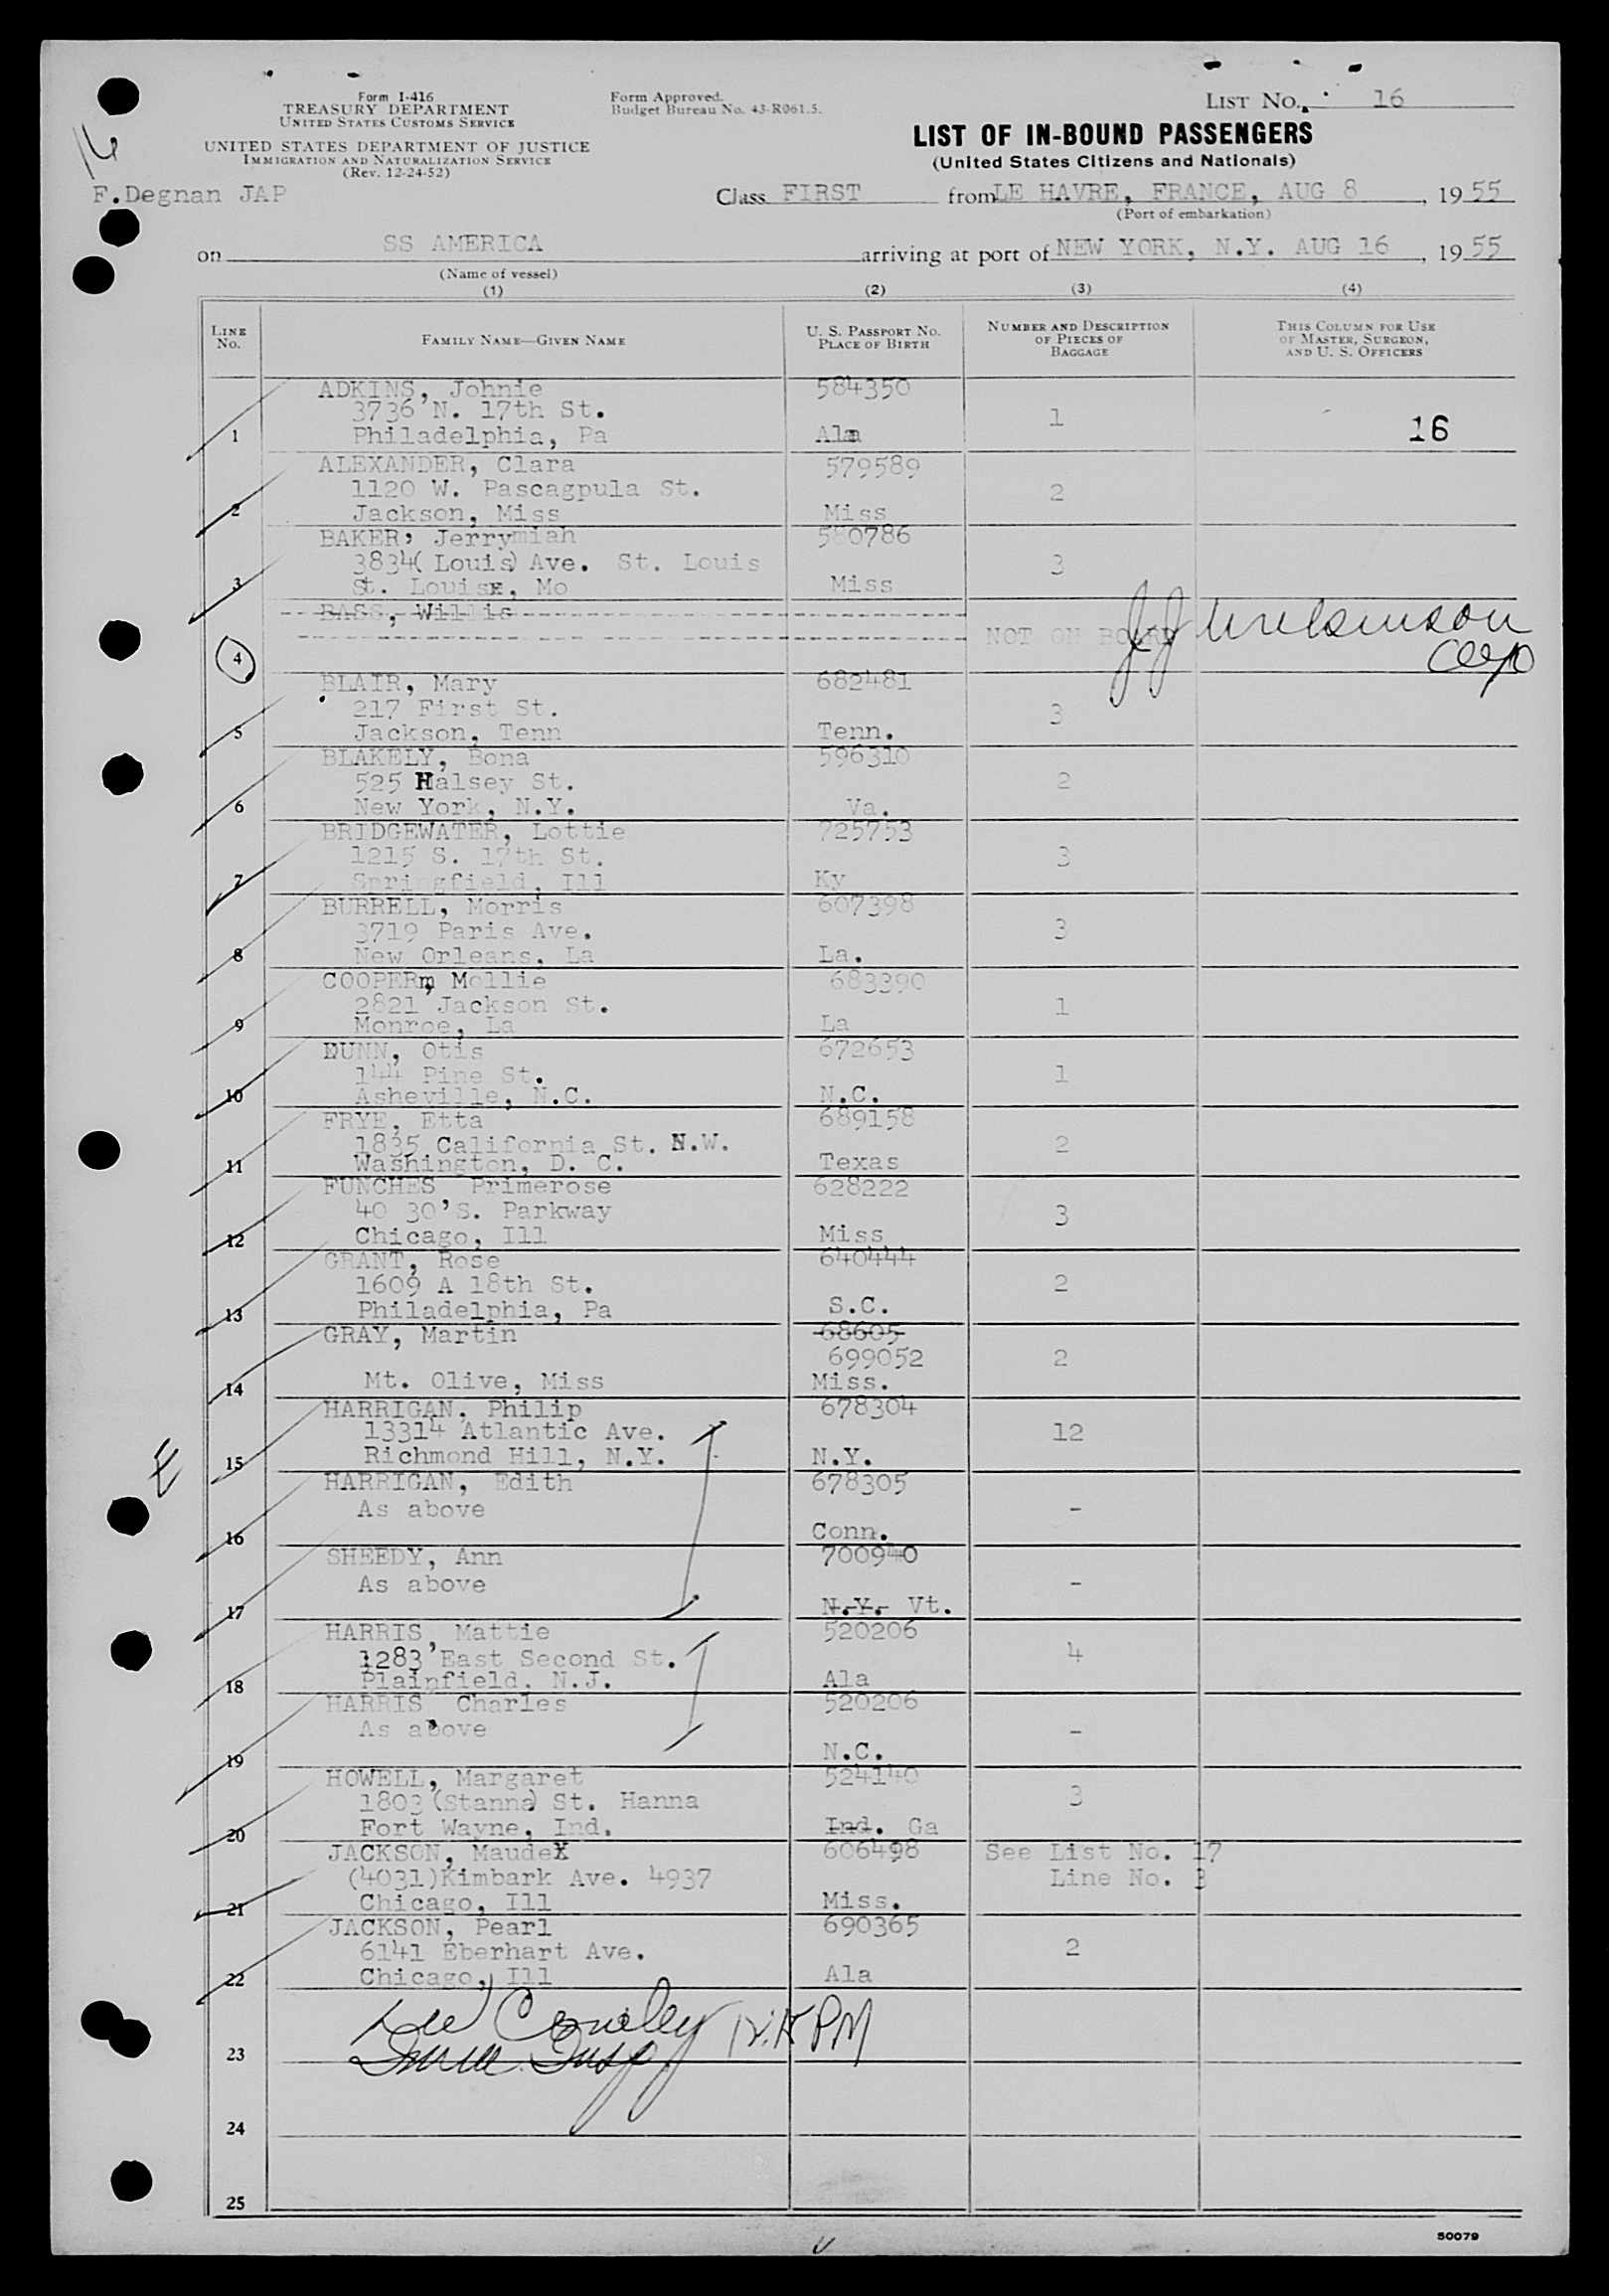 16
Form I-416
TREASURY DEPARTMENT
UNITED STATES CUSTOMS SERVICE
UNITED STATES DEPARTMENT OF JUSTICE
IMMIGRATION AND NATURALIZATION SERVICE
(Rev. 12-24-52)
Form Approved.
Budget Bureau No. 43-R061.5.
LIST No. 16
LIST OF IN-BOUND PASSENGERS
(United States Citizens and Nationals)
F.Degnan JAP
Class FIRST from LE HAVRE, FRANCE, AUG 8, 1955
(Port of embarkation)
on SS AMERICA arriving at port of NEW YORK, N.Y. AUG 16, 1955
(Name of vessel)
(1) (2) (3) (4)
LINE No. FAMILY NAME—GIVEN NAME U. S. PASSPORT No. PLACE OF BIRTH NUMBER AND DESCRIPTION OF PIECES OF BAGGAGE THIS COLUMN FOR USE OF MASTER, SURGEON, AND U. S. OFFICERS
ADKINS, Johnie 584350
3736 N. 17th St. 1
1 Philadelphia, Pa Ala 16
ALEXANDER, Clara 579589
1120 W. Pascagpula St. 2
2 Jackson, Miss Miss
BAKER, Jerrymiah 580786
3834( Louis) Ave. St. Louis 3
3 St. Louis, Mo Miss
BASS, Willis
NOT ON BOARD
4
BLAIR, Mary 682481
217 First St. 3
5 Jackson, Tenn Tenn.
BLAKELY, Bona 596310
525 Halsey St. 2
6 New York, N.Y. Va.
BRIDGEWATER, Lottie 725753
1215 S. 17th St. 3
7 Springfield, Ill Ky
BURRELL, Morris 607398
3719 Paris Ave. 3
8 New Orleans, La La.
COOPER, Mollie 683390
2821 Jackson St. 1
9 Monroe, La La
DUNN, Otis 672653
144 Pine St. 1
10 Asheville, N.C. N.C.
FRYE, Etta 689158
1835 California St. N.W. 2
11 Washington, D. C. Texas
FUNCHES Primerose 628222
40 30'S. Parkway 3
12 Chicago, Ill Miss
GRANT, Rose 640444
1609 A 18th St. 2
13 Philadelphia, Pa S.C.
GRAY, Martin 68605
699052 2
14 Mt. Olive, Miss Miss.
HARRIGAN, Philip 678304
13314 Atlantic Ave. 12
15 Richmond Hill, N.Y. N.Y.
HARRIGAN, Edith 678305
As above -
16 Conn.
SHEEDY, Ann 700940
As above -
17 N.Y. Vt.
HARRIS, Mattie 520206
1283 East Second St. 4
18 Plainfield, N.J. Ala
HARRIS Charles 520206
As above -
19 N.C.
HOWELL, Margaret 524140
1803 (Stanna) St. Hanna 3
20 Fort Wayne, Ind. Ind. Ga
JACKSON, Maude 606498 See List No. 17
(4031)Kimbark Ave. 4937 Line No. 3
21 Chicago, Ill Miss.
JACKSON, Pearl 690365
6141 Eberhart Ave. 2
22 Chicago, Ill Ala
PM
23
24
25
50079